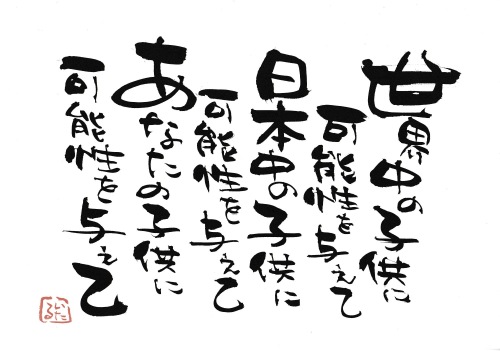 世界中の子供に
可能性を与えて
日本中の子供に
可能性を与えて
あなたの子供に
可能性を与えて